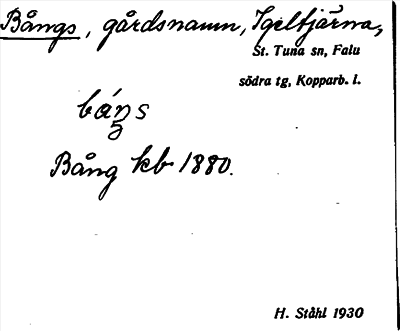 Bångs, gårdsnamn, Igeltjärna,
St. Tuna sn, Falu
södra tg, Kopparb. l.
Bång kb 1880.
H. Ståhl 1930